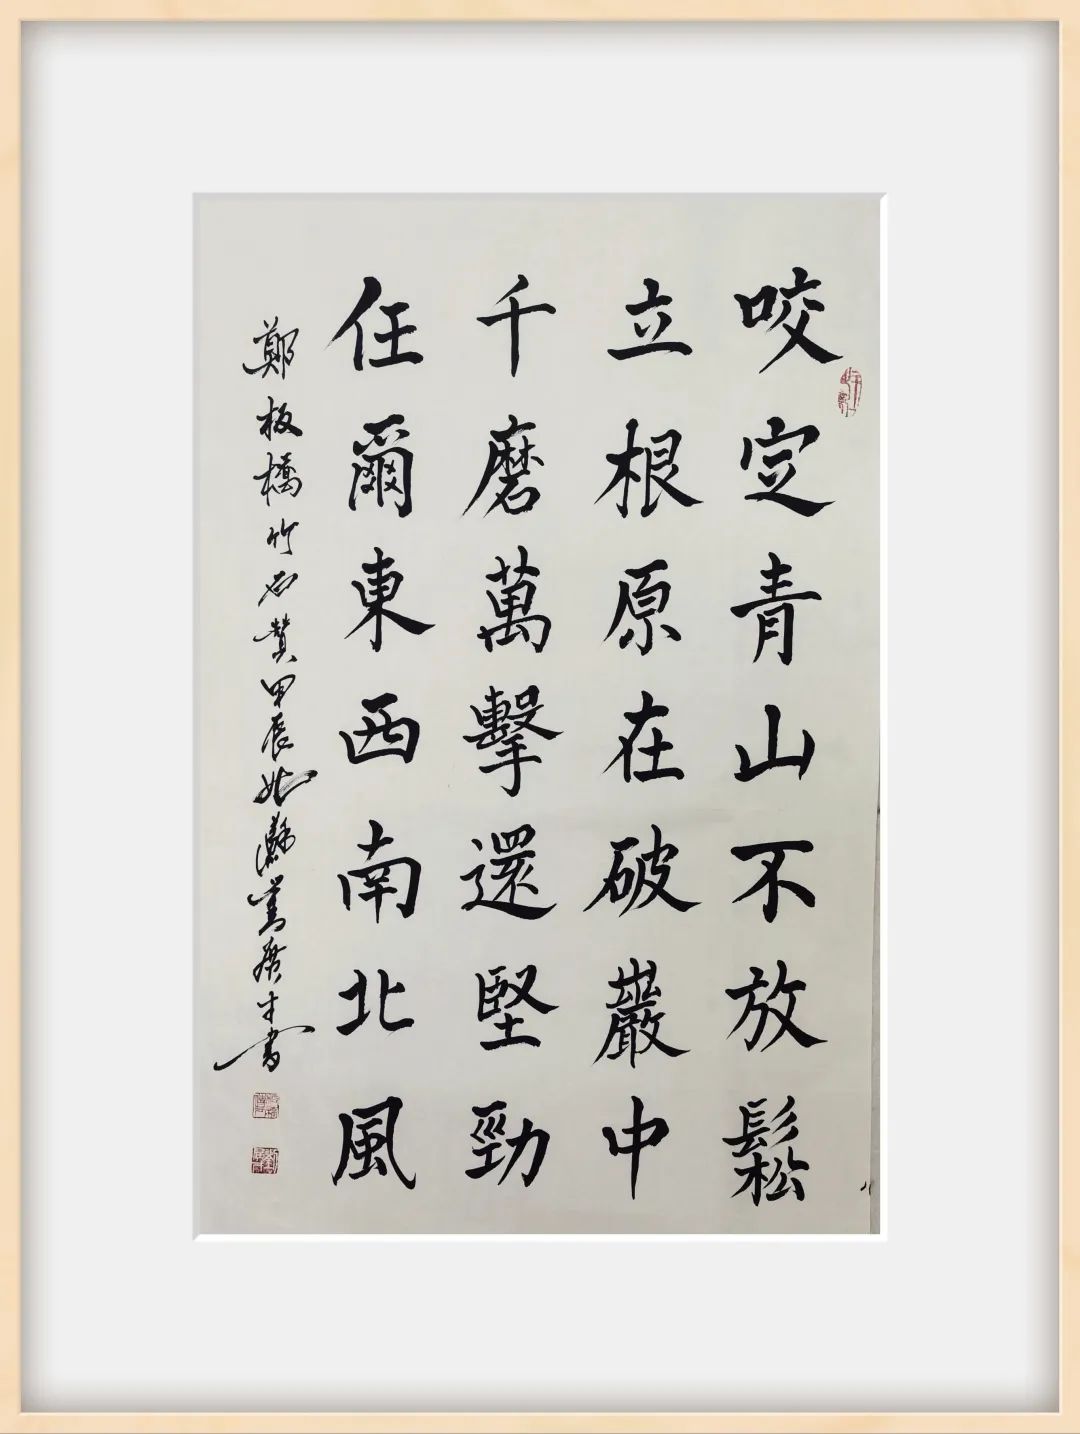 咬定青山不放鬆
立根原在破巖中
千磨萬擊還堅勁
任爾東西南北風
鄭板橋竹石贊甲辰廣才書